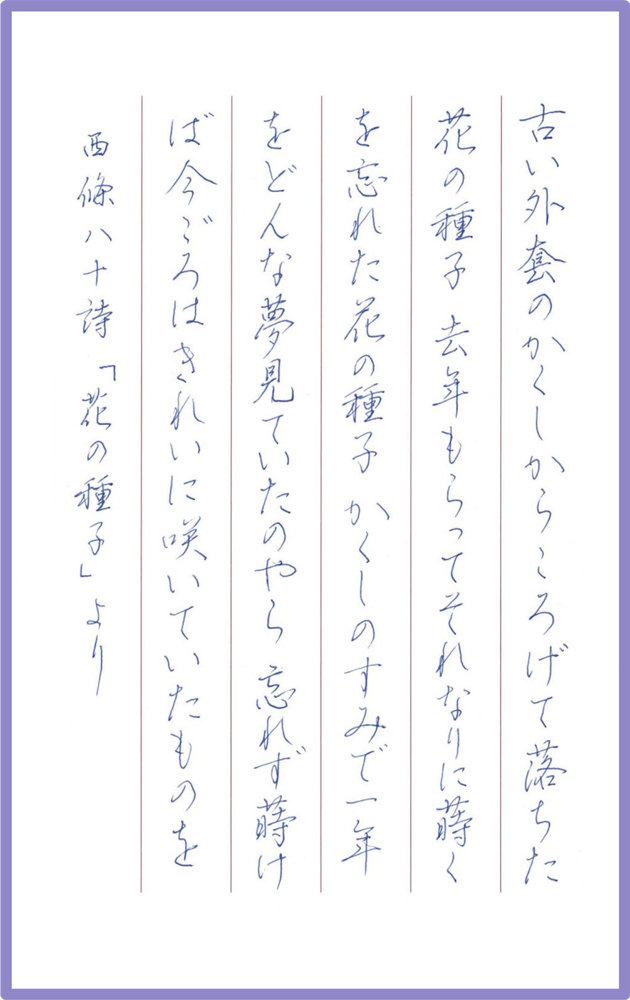 古い外套のかくしからころげて落ちた
花の種子 去年もらってそれなりに蒔く
を忘れた花の種子 かくしのすみで一年
をどんな夢見ていたのやら 忘れず蒔け
ば今ごろはきれいに咲いていたものを
西條八十詩「花の種子」より